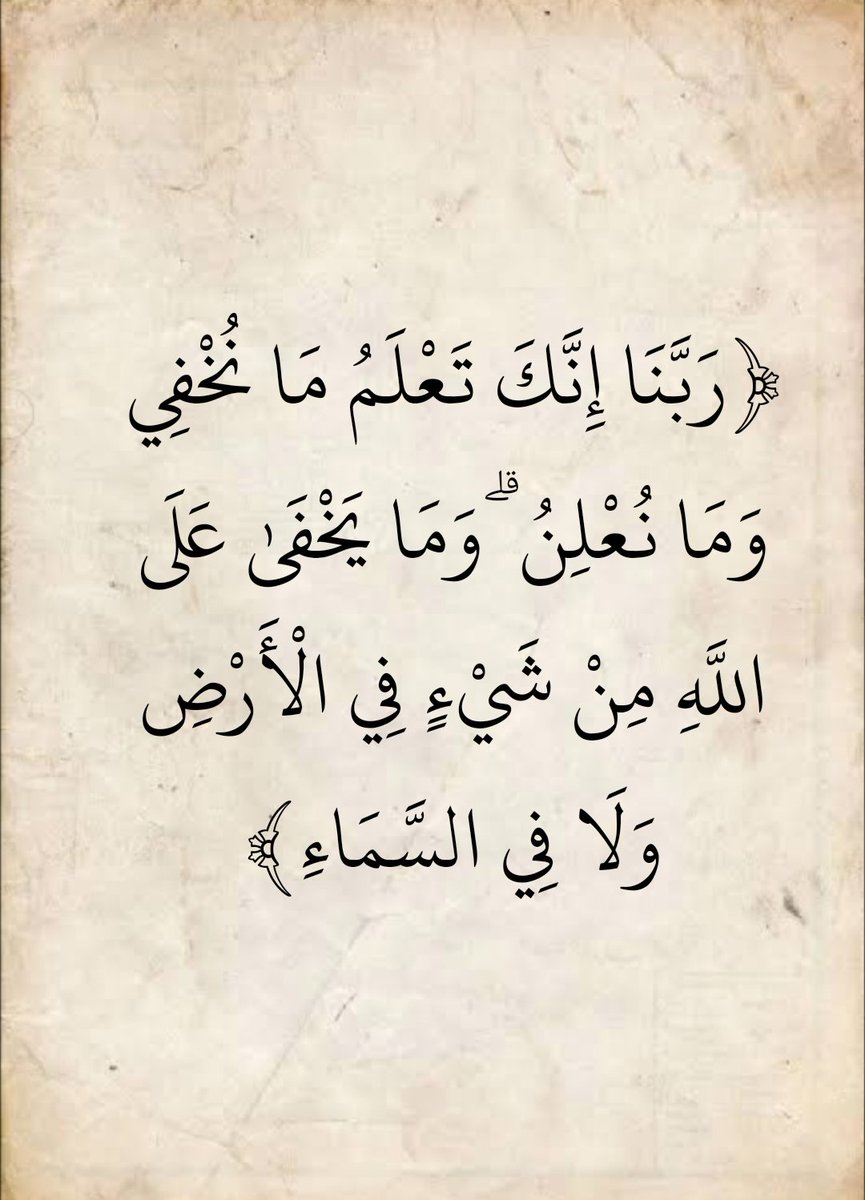 ﴿ رَبَّنَا إِنَّكَ تَعْلَمُ مَا نُخْفِي
وَمَا نُعْلِنُ ۗ وَمَا يَخْفَىٰ عَلَى
اللَّهِ مِنْ شَيْءٍ فِي الْأَرْضِ
وَلَا فِي السَّمَاءِ ﴾